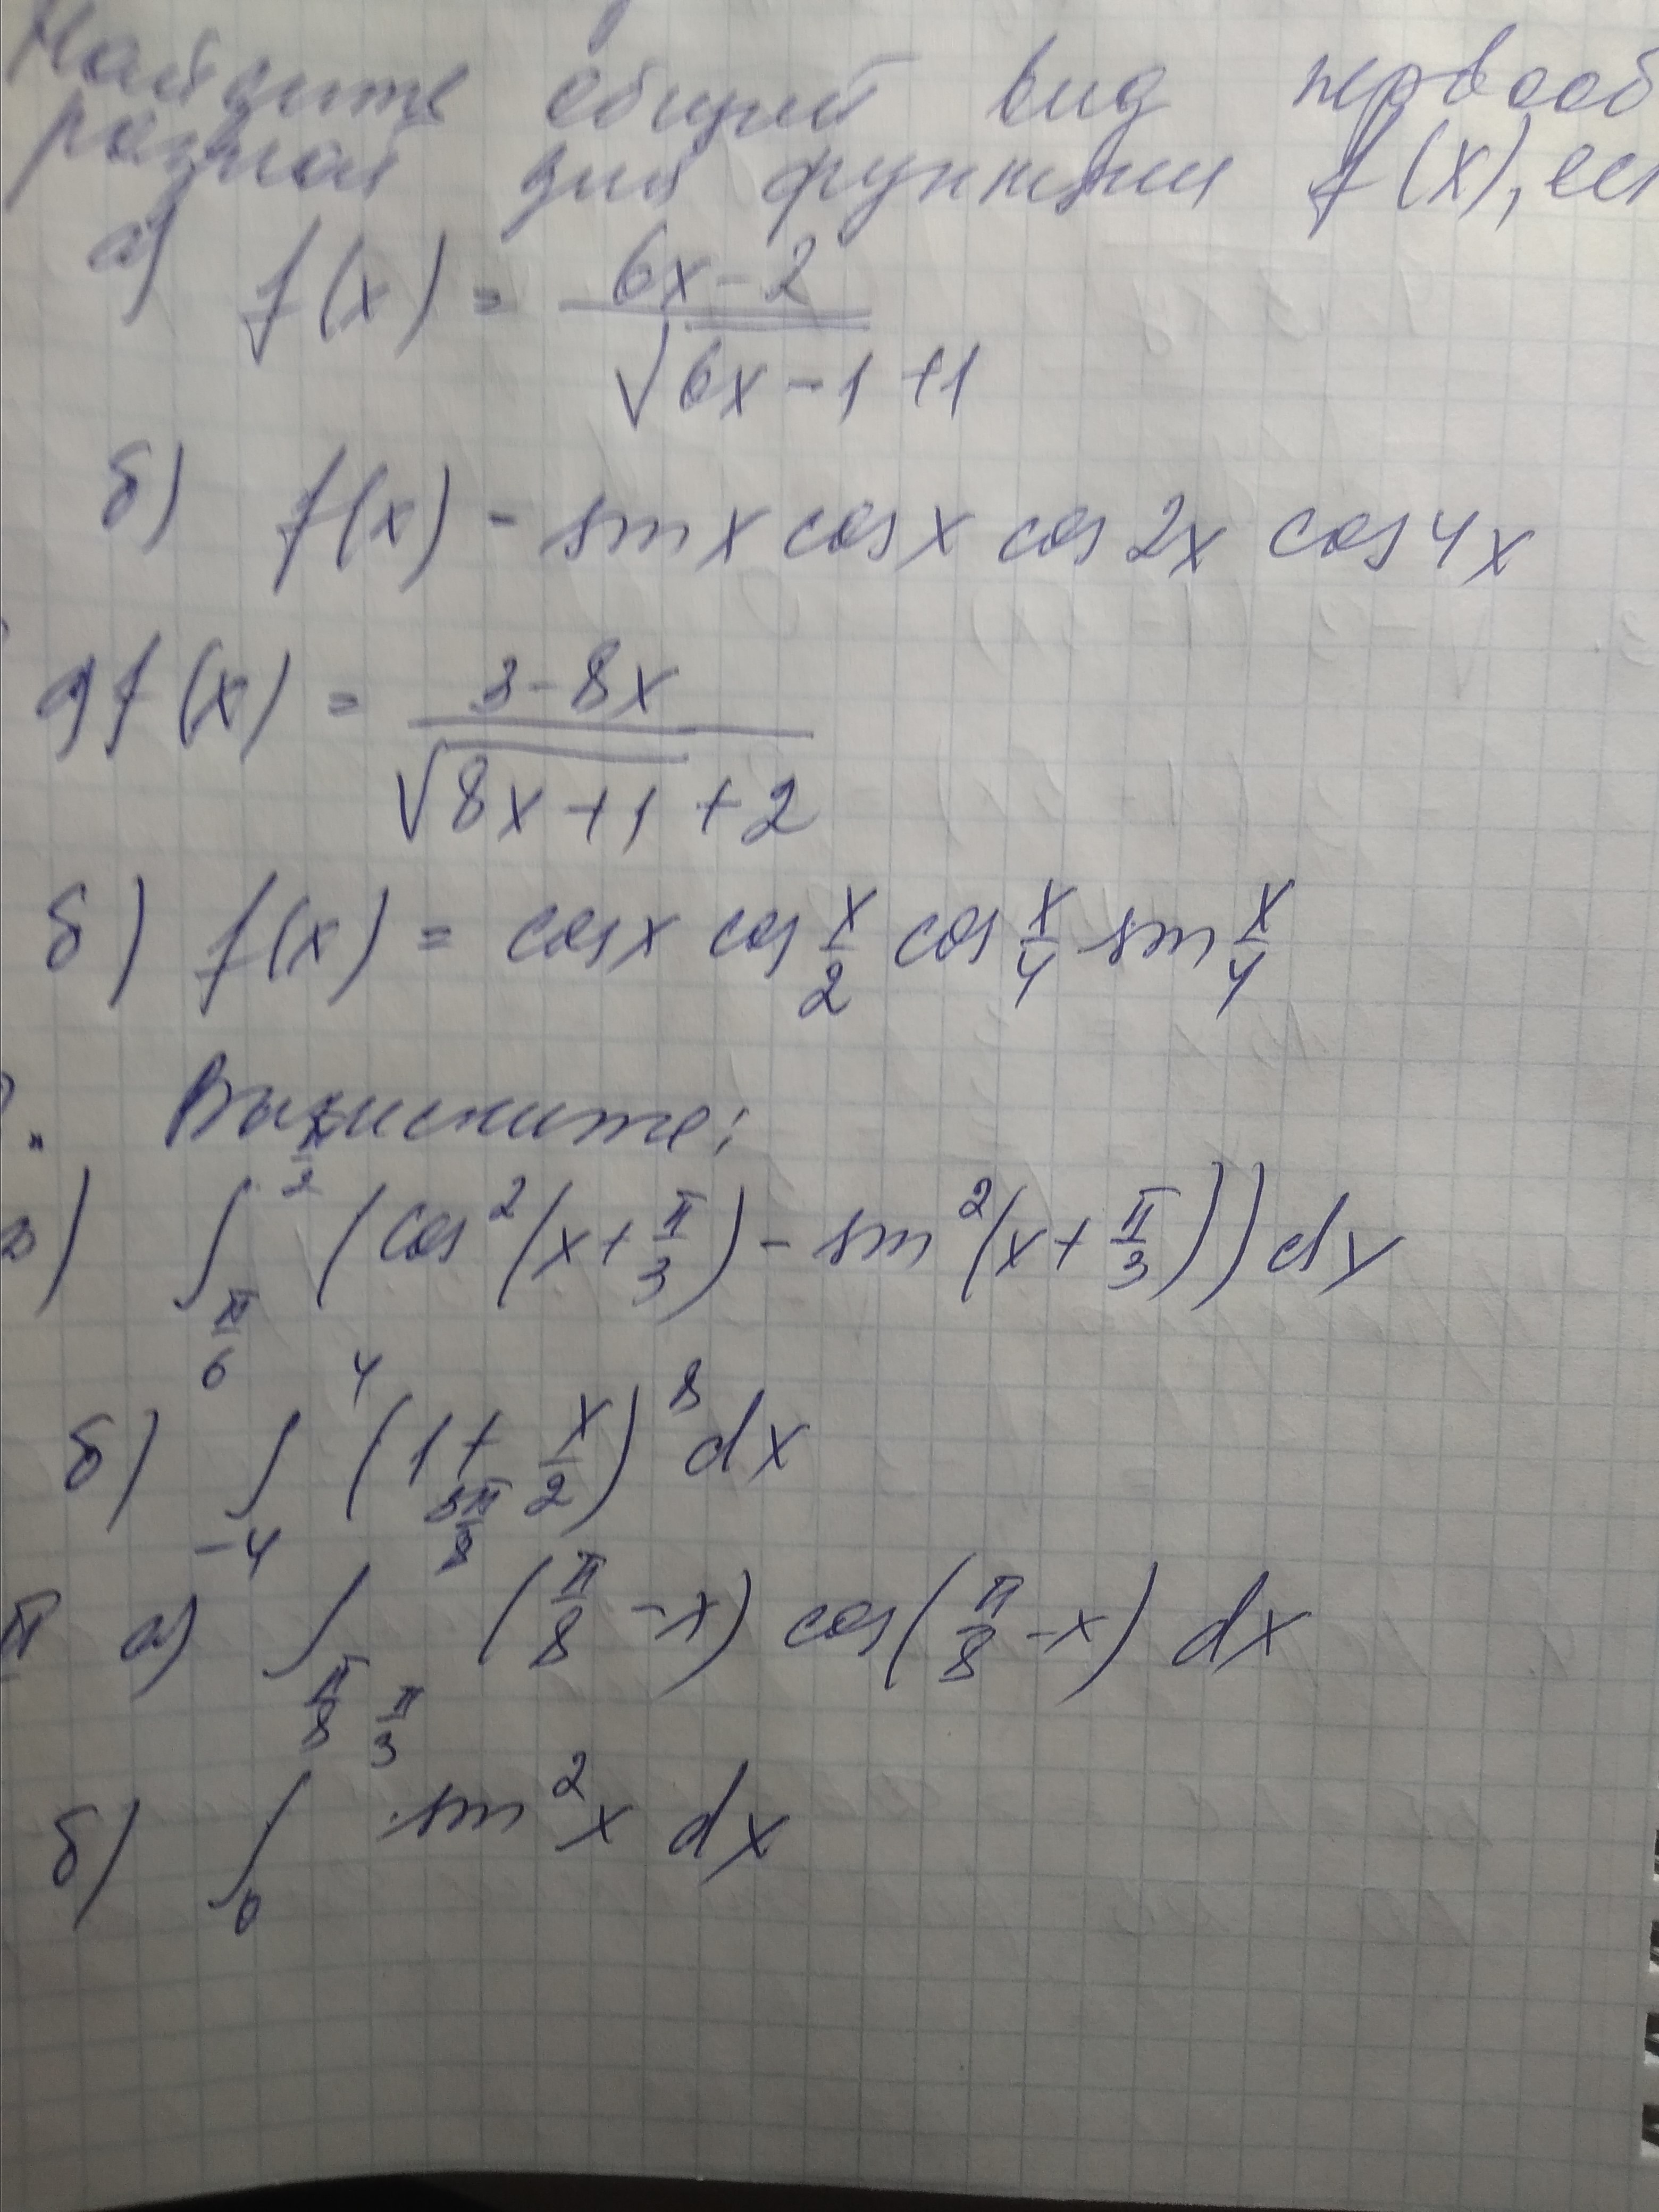 Найдите общий вид первооб
разной для функции f(x), есл
а) f(x) = (6x-2)/(√(6x-1) +1)
б) f(x) - sin x cos x cos 2x cos 4x
а) f(x) = (3-8x)/(√(8x+1) +2)
б) f(x) = cos x cos x/2 cos x/4 sin x/4
Вычислите:
а) ∫_{π/6}^{π/2} (cos²(x+π/3) - sin²(x+π/3)) dx
б) ∫_{-4}^{4} (1+ x/2)⁸ dx
II а) ∫_{π/8}^{3π/8} (π/8 -x) cos(π/8 -x) dx
б) ∫_{0}^{π/3} sin²x dx